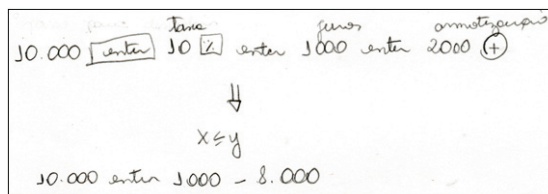 taxa juros amortização
10.000 enter 10 % enter 1000 enter 2000 +
⇓
x≤y
10.000 enter 1000 - 8.000